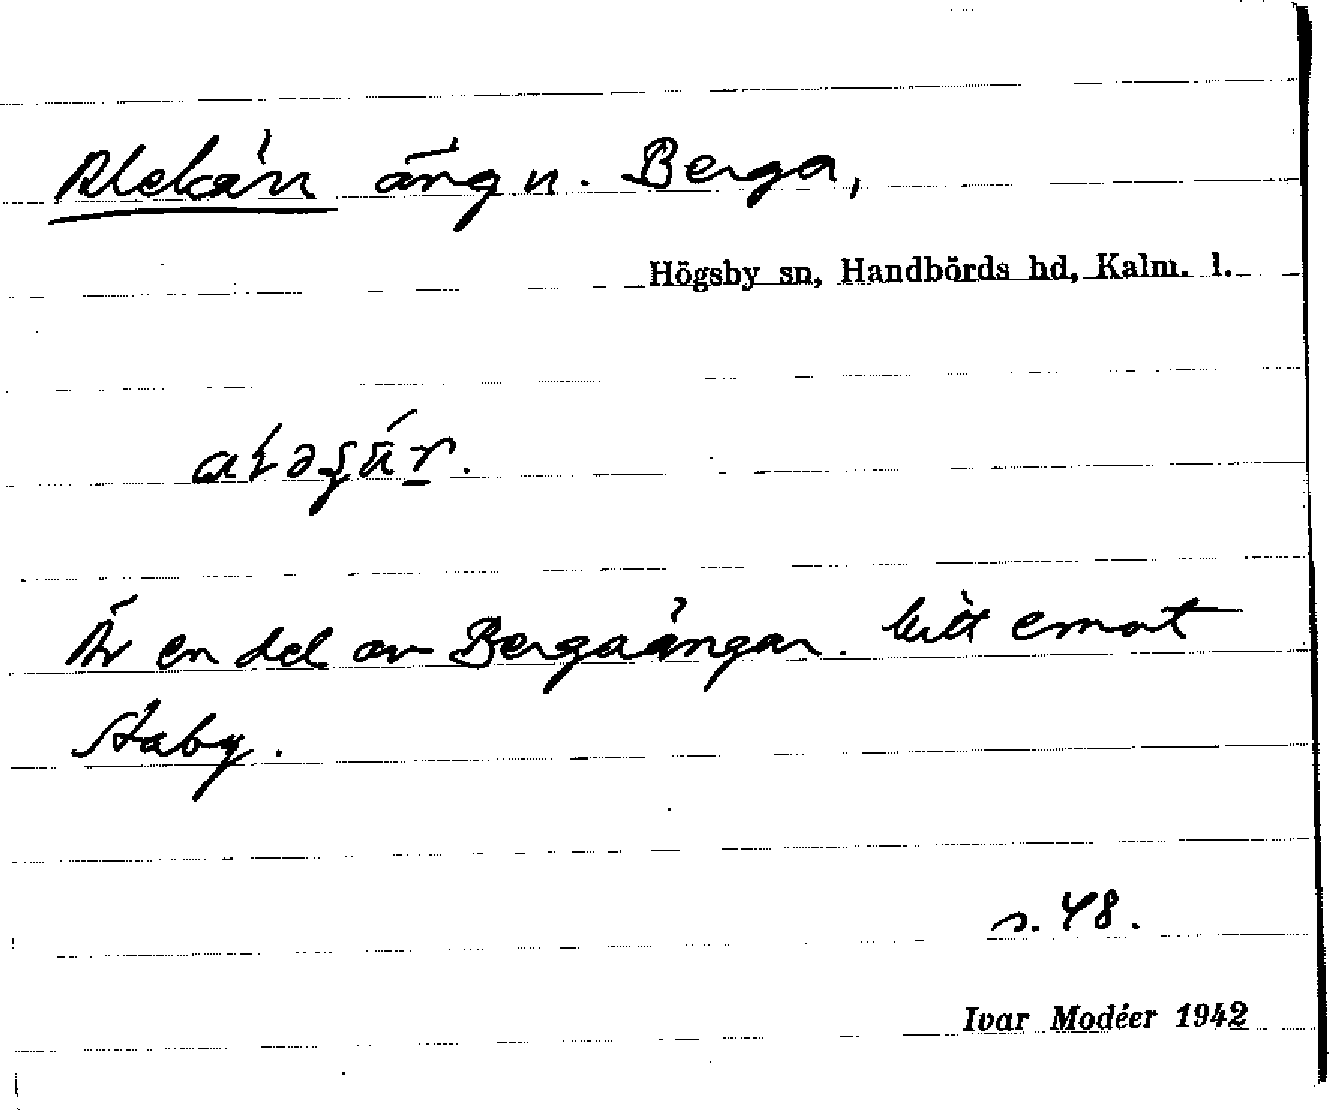 Alekärr ängn. Berga,
Högsby sn, Handbörds hd, Kalm. l.
Är en del av Bergaängar. bitt emot
Staby.
s. 48.
Ivar Modéer 1942